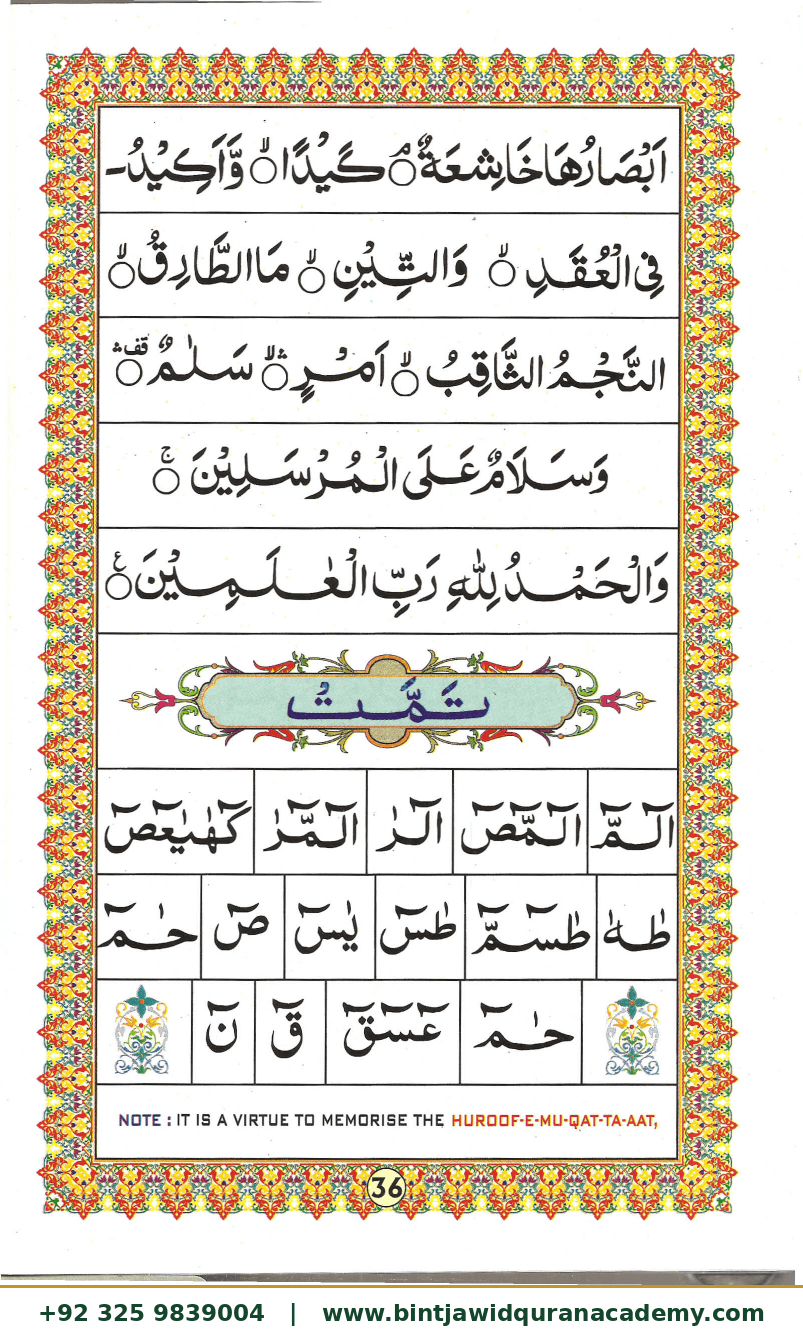 اَبْصَارُهَا خَاشِعَةٌ ۘ كَيْدًا ۙ وَّاَكِيْدُ-
فِى الْعُقَدِ ۙ وَالتِّيْنِ ۙ مَا الطَّارِقُ ۙ
النَّجْمُ الثَّاقِبُ ۙ اَمْرٍ ۛۙ سَلٰمٌ ۛقف
وَسَلَامٌ عَلَى الْمُرْسَلِيْنَ ۚ
وَالْحَمْدُ لِلّٰهِ رَبِّ الْعٰلَمِيْنَ ع
تَمَّتْ
الٓمّٓ الٓمّٓصٓ الٓرٰ الٓمّٓرٰ كٓهٰيٰعٓصٓ
طٰهٰ طٰسٓمّٓ طٰسٓ يٰسٓ صٓ حٰمٓ
حٰمٓ عٓسٓقٓ قٓ نٓ
NOTE : IT IS A VIRTUE TO MEMORISE THE HUROOF-E-MU-QAT-TA-AAT,
36
+92 325 9839004 | www.bintjawidquranacademy.com